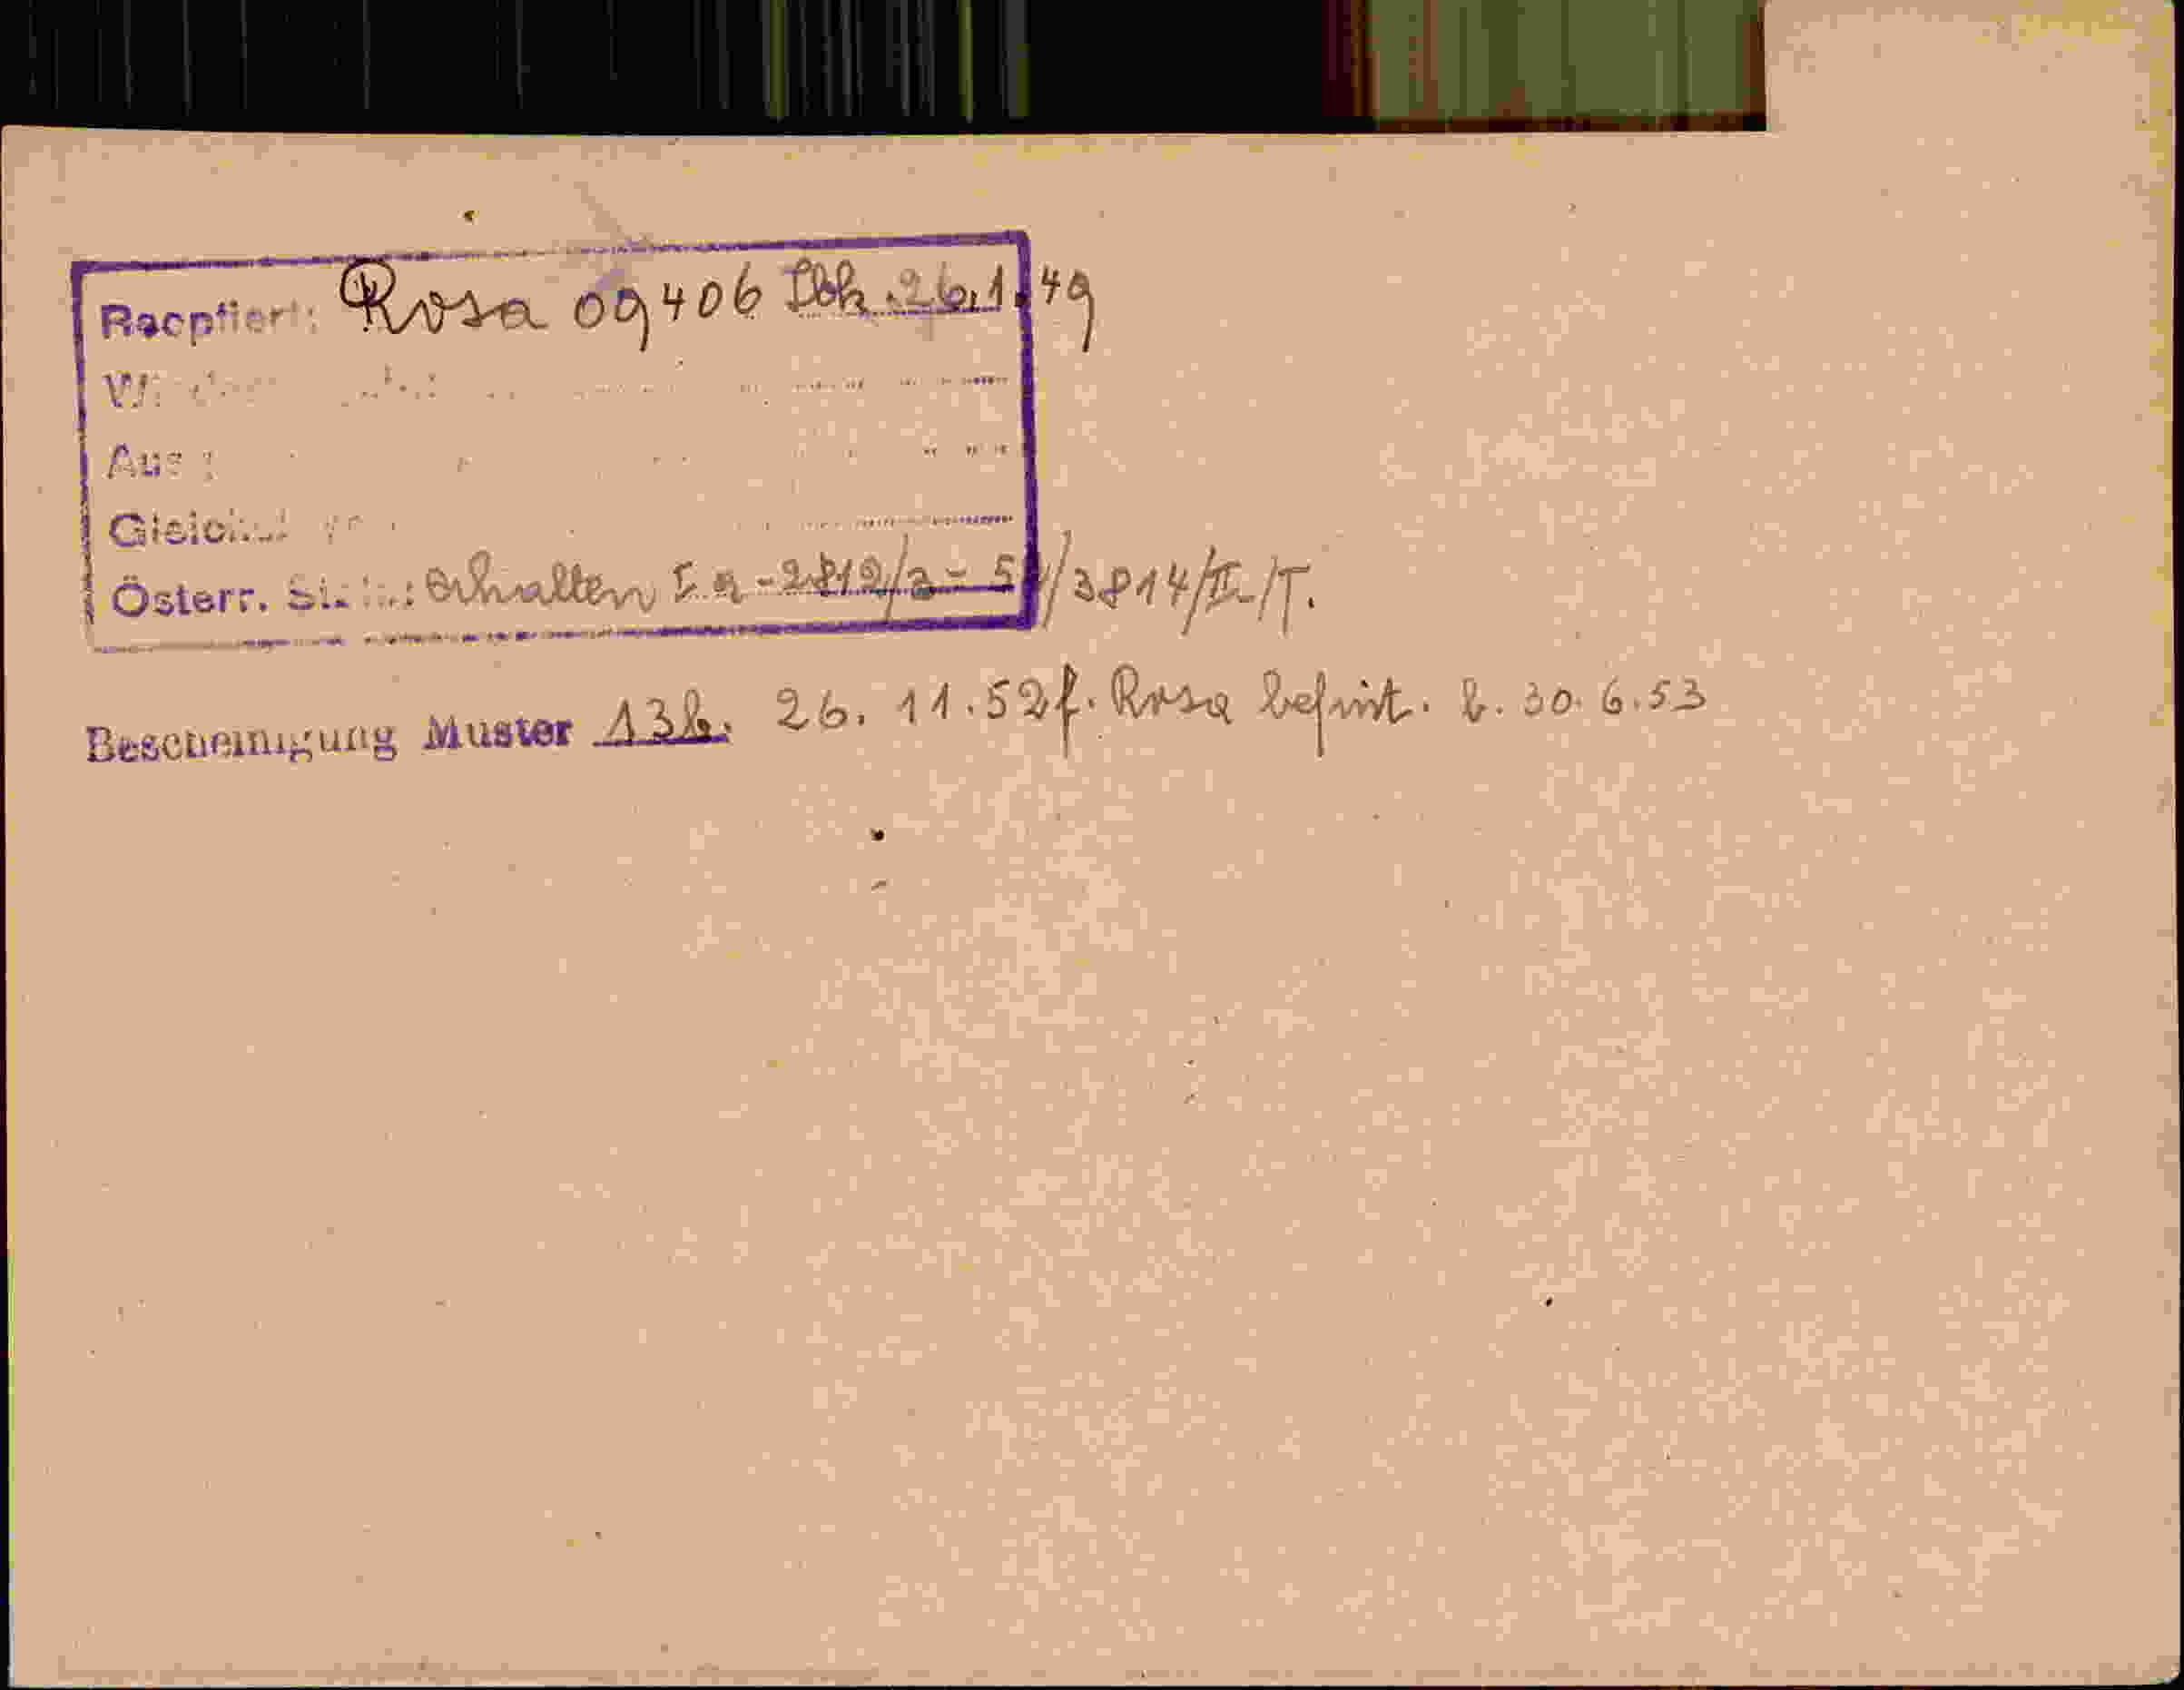 Racptiert: Rosa 09406 Ibk. 26.1.49
Aus :
Österr. erhalten I a-2812/a- /3814/II-/T.
Bescheinigung Muster 13b. 26. 11.52 f. Rosa befrist. b. 30.6.53